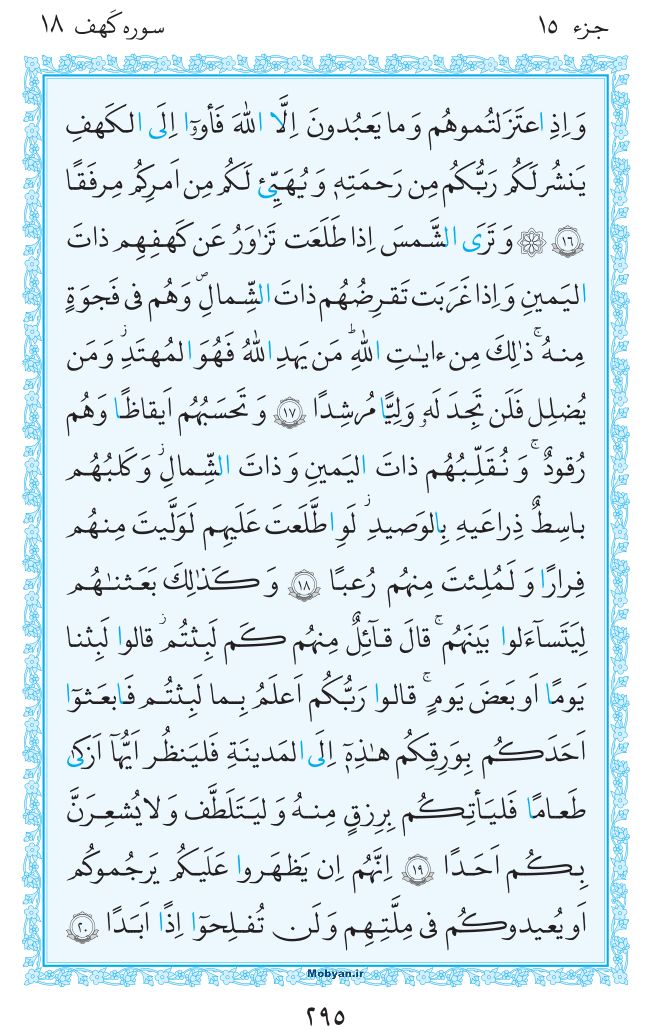 جزء ۱۵
سوره کَهف ۱۸
وَ اِذِ اعتَزَلتُموهُم وَ ما يَعبُدونَ اِلَّا اللّٰهَ فَأوۥٓا اِلَى الكَهفِ
يَنشُر لَكُم رَبُّكُم مِن رَحمَتِهٖ وَ يُهَيِّئ لَكُم مِن اَمرِكُم مِرفَقًا
﴿۱۶﴾ ۞ وَ تَرَى الشَّمسَ اِذا طَلَعَت تَزٰوَرُ عَن كَهفِهِم ذاتَ
اليَمينِ وَ اِذا غَرَبَت تَقرِضُهُم ذاتَ الشِّمالِ ۖ وَ هُم فى فَجوَةٍ
مِنهُ ۚ ذٰلِكَ مِن ءايٰتِ اللّٰهِ ۗ مَن يَهدِ اللّٰهُ فَهُوَ المُهتَدِ ۖ وَ مَن
يُضلِل فَلَن تَجِدَ لَهٗ وَلِيًّا مُرشِدًا ﴿۱۷﴾ وَ تَحسَبُهُم اَيقاظًا وَ هُم
رُقودٌ ۚ وَ نُقَلِّبُهُم ذاتَ اليَمينِ وَ ذاتَ الشِّمالِ ۖ وَ كَلبُهُم
باسِطٌ ذِراعَيهِ بِالوَصيدِ ۚ لَوِ اطَّلَعتَ عَلَيهِم لَوَلَّيتَ مِنهُم
فِرارًا وَ لَمُلِئتَ مِنهُم رُعبًا ﴿۱۸﴾ وَ كَذٰلِكَ بَعَثنٰهُم
لِيَتَسآءَلوا بَينَهُم ۚ قالَ قآئِلٌ مِنهُم كَم لَبِثتُم ۖ قالوا لَبِثنا
يَومًا اَو بَعضَ يَومٍ ۚ قالوا رَبُّكُم اَعلَمُ بِما لَبِثتُم فَابعَثوٓا
اَحَدَكُم بِوَرِقِكُم هٰذِهٖٓ اِلَى المَدينَةِ فَليَنظُر اَيُّهآ اَزكىٰ
طَعامًا فَليَأتِكُم بِرِزقٍ مِنهُ وَ ليَتَلَطَّف وَ لا يُشعِرَنَّ
بِكُم اَحَدًا ﴿۱۹﴾ اِنَّهُم اِن يَظهَروا عَلَيكُم يَرجُموكُم
اَو يُعيدوكُم فى مِلَّتِهِم وَ لَن تُفلِحوٓا اِذًا اَبَدًا ﴿۲۰﴾
Mobyan.ir
۲۹۵